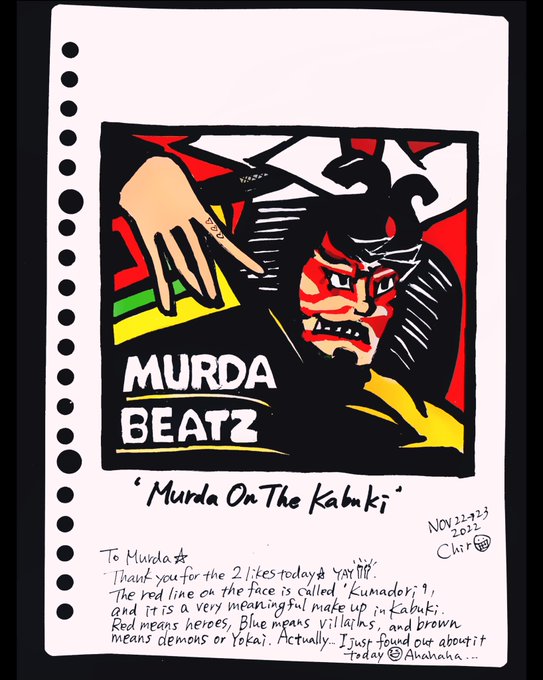 MURDA
BEATZ
"Murda On The Kabuki"
NOV 22→23
2022
Chiro
To Murda☆
Thank you for the 2 likes today☆ YAY!!!.
The red line on the face is called "Kumadori",
and it is a very meaningful make up in Kabuki.
Red means heroes, Blue means villains, and brown
means demons or Yokai. Actually... I just found out about it
today 😄 Ahahaha...